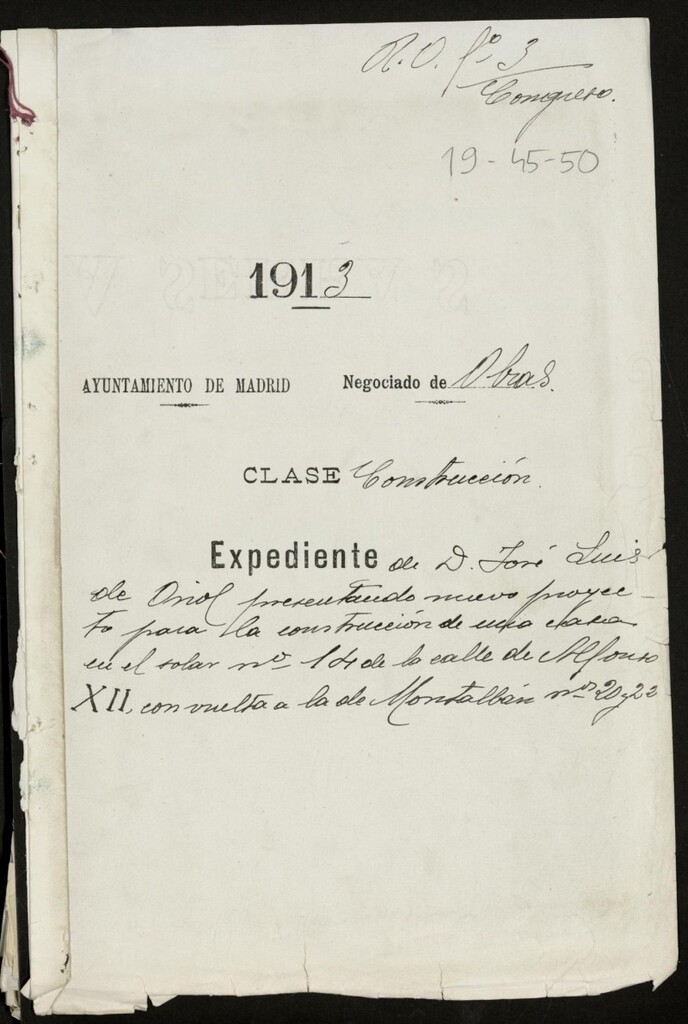 R. O. fº 3
Congreso.
19-45-50
1913
AYUNTAMIENTO DE MADRID Negociado de Obras.
CLASE Construcción.
Expediente de D. José Luis
de Oriol presentando nuevo proyec-
to para la construcción de una casa
en el solar nº 14 de la calle de Alfonso
XII, con vuelta a la de Montalbán nos 20 y 22